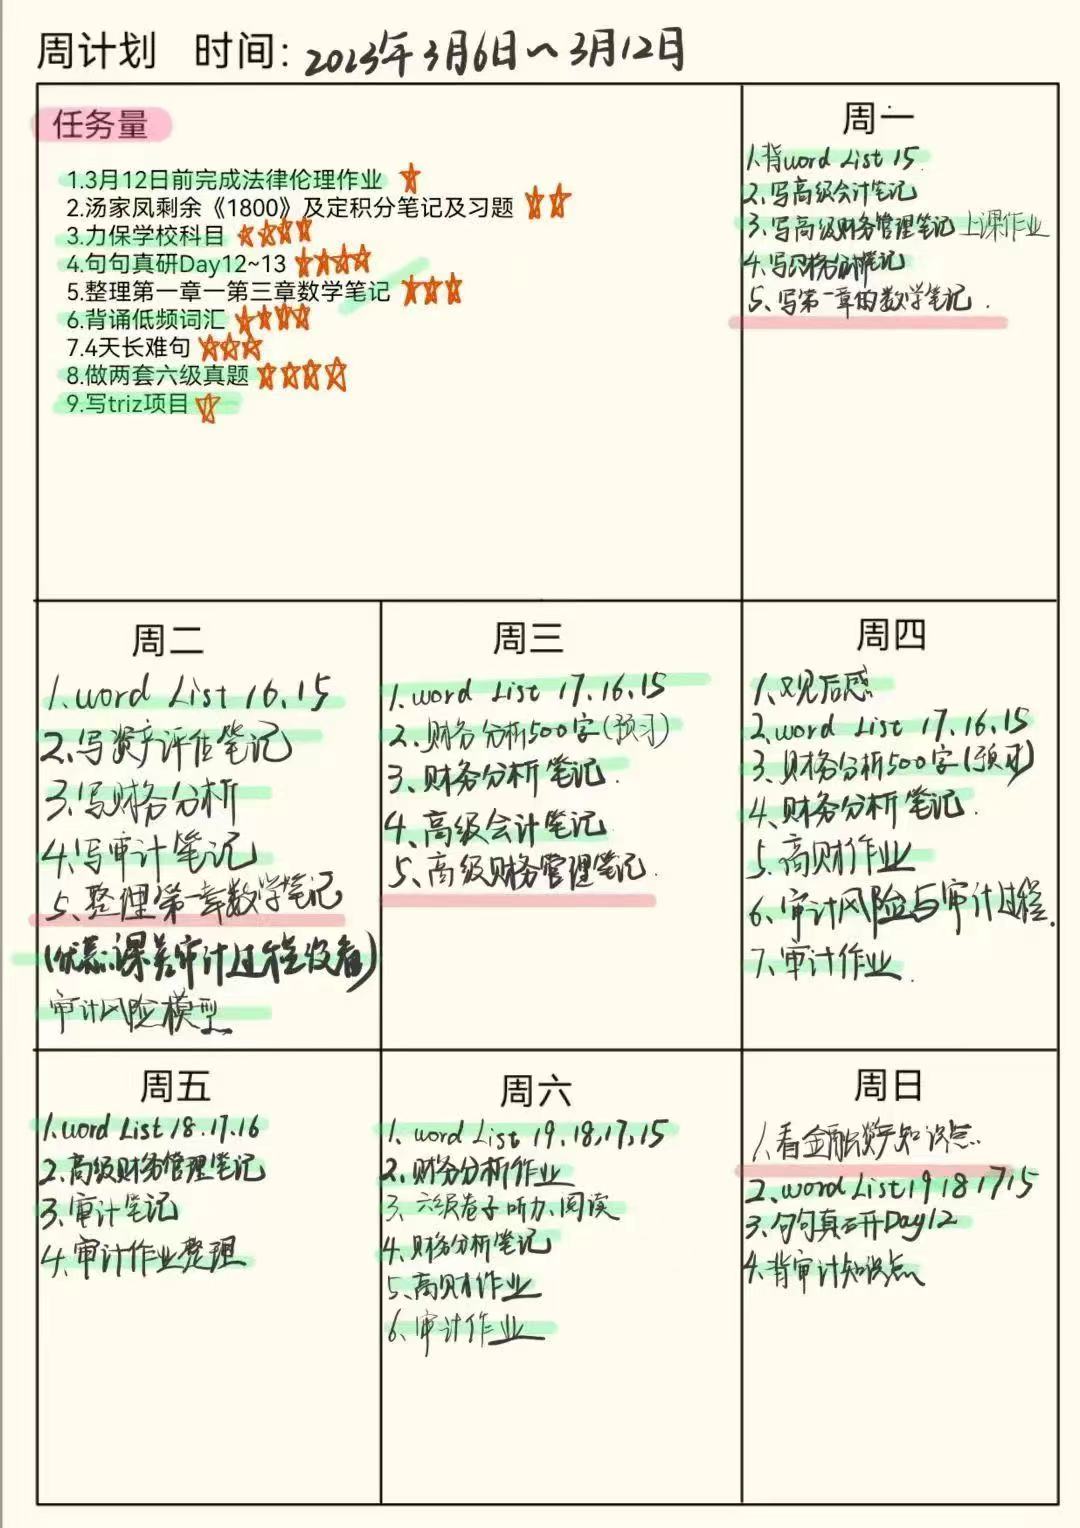 周计划 时间: 2023年3月6日~3月12日
任务量
1.3月12日前完成法律伦理作业
2.汤家凤剩余《1800》及定积分笔记及习题
3.力保学校科目
4.句句真研Day12~13
5.整理第一章一第三章数学笔记
6.背诵低频词汇
7.4天长难句
8.做两套六级真题
9.写triz项目
周一
1.背word List 15
2.写高级会计笔记
3.写高级财务管理笔记 上课作业
4.写财务分析笔记
5、写第一章的数学笔记.
周二
1.word List 16、15
2.写资产评估笔记
3.写财务分析
4.写审计笔记
5、整理第一章数学笔记
审计风险模型
周三
1.word List 17.16.15
2.财务分析500字(预习)
3.财务分析笔记.
4、高级会计笔记
5、高级财务管理笔记.
周四
1、观后感
2.word List 17.16.15
3、财务分析500字(预习)
4.财务分析笔记.
5、高财作业
6、审计风险与审计过程.
7、审计作业.
周五
1.word List 18.17.16
2.高级财务管理笔记
3.审计笔记
4.审计作业整理
周六
1、word List 19.18,17,15
2.财务分析作业
3、六级卷子听力、阅读
4.财务分析笔记
5、高财作业
6、审计作业
周日
1.看金融资产知识点.
2.word List 19 18 17 15
3.句句真研Day12
4.背审计知识点